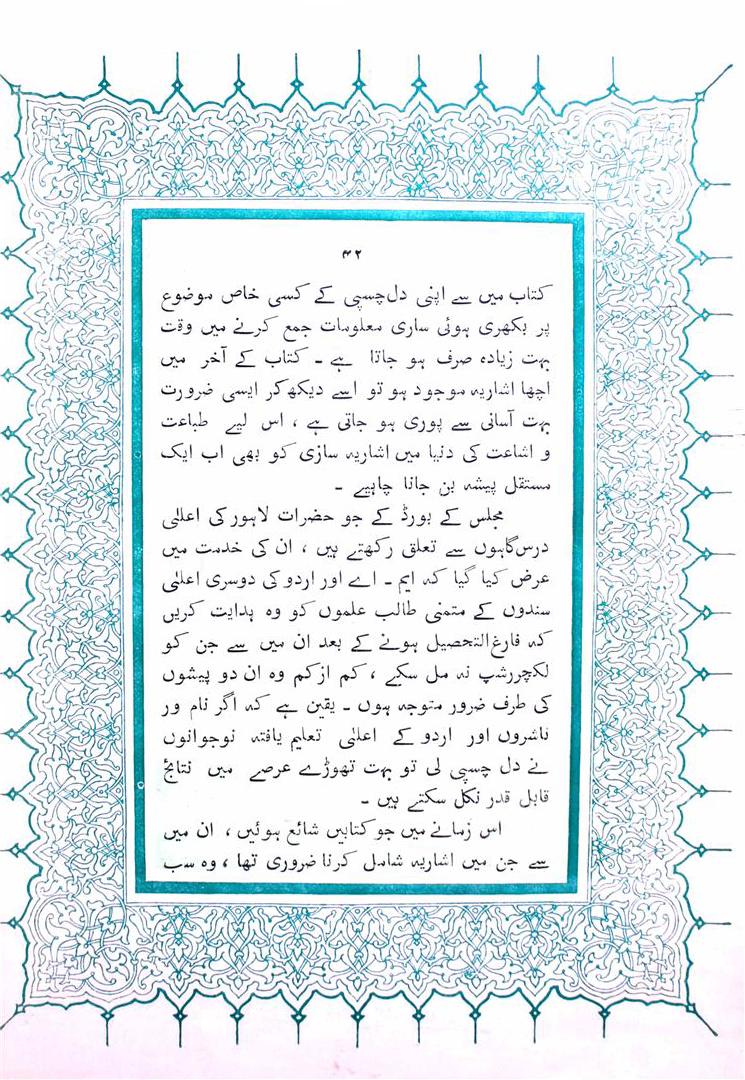 ۴۲
کتاب میں سے اپنی دل چسپی کے کسی خاص موضوع
پر بکھری ہوئی ساری معلومات جمع کرنے میں وقت
بہت زیادہ صرف ہو جاتا ہے ۔ کتاب کے آخر میں
اچھا اشاریہ موجود ہو تو اسے دیکھ کر ایسی ضرورت
بہت آسانی سے پوری ہو جاتی ہے ، اس لیے طباعت
و اشاعت کی دنیا میں اشاریہ سازی کو بھی اب ایک
مستقل پیشہ بن جانا چاہیے ۔
مجلس کے بورڈ کے جو حضرات لاہور کی اعلیٰ
درس گاہوں سے تعلق رکھتے ہیں ، ان کی خدمت میں
عرض کیا گیا کہ ایم ۔ اے اور اردو کی دوسری اعلیٰ
سندوں کے متمنی طالب علموں کو وہ ہدایت کریں
کہ فارغ التحصیل ہونے کے بعد ان میں سے جن کو
لکچررشپ نہ مل سکے ، کم ازکم وہ ان دو پیشوں
کی طرف ضرور متوجہ ہوں ۔ یقین ہے کہ اگر نام ور
ناشروں اور اردو کے اعلیٰ تعلیم یافتہ نوجوانوں
نے دل چسپی لی تو بہت تھوڑے عرصے میں نتائج
قابل قدر نکل سکتے ہیں ۔
اس زمانے میں جو کتابیں شائع ہوئیں ، ان میں
سے جن میں اشاریہ شامل کرنا ضروری تھا ، وہ سب